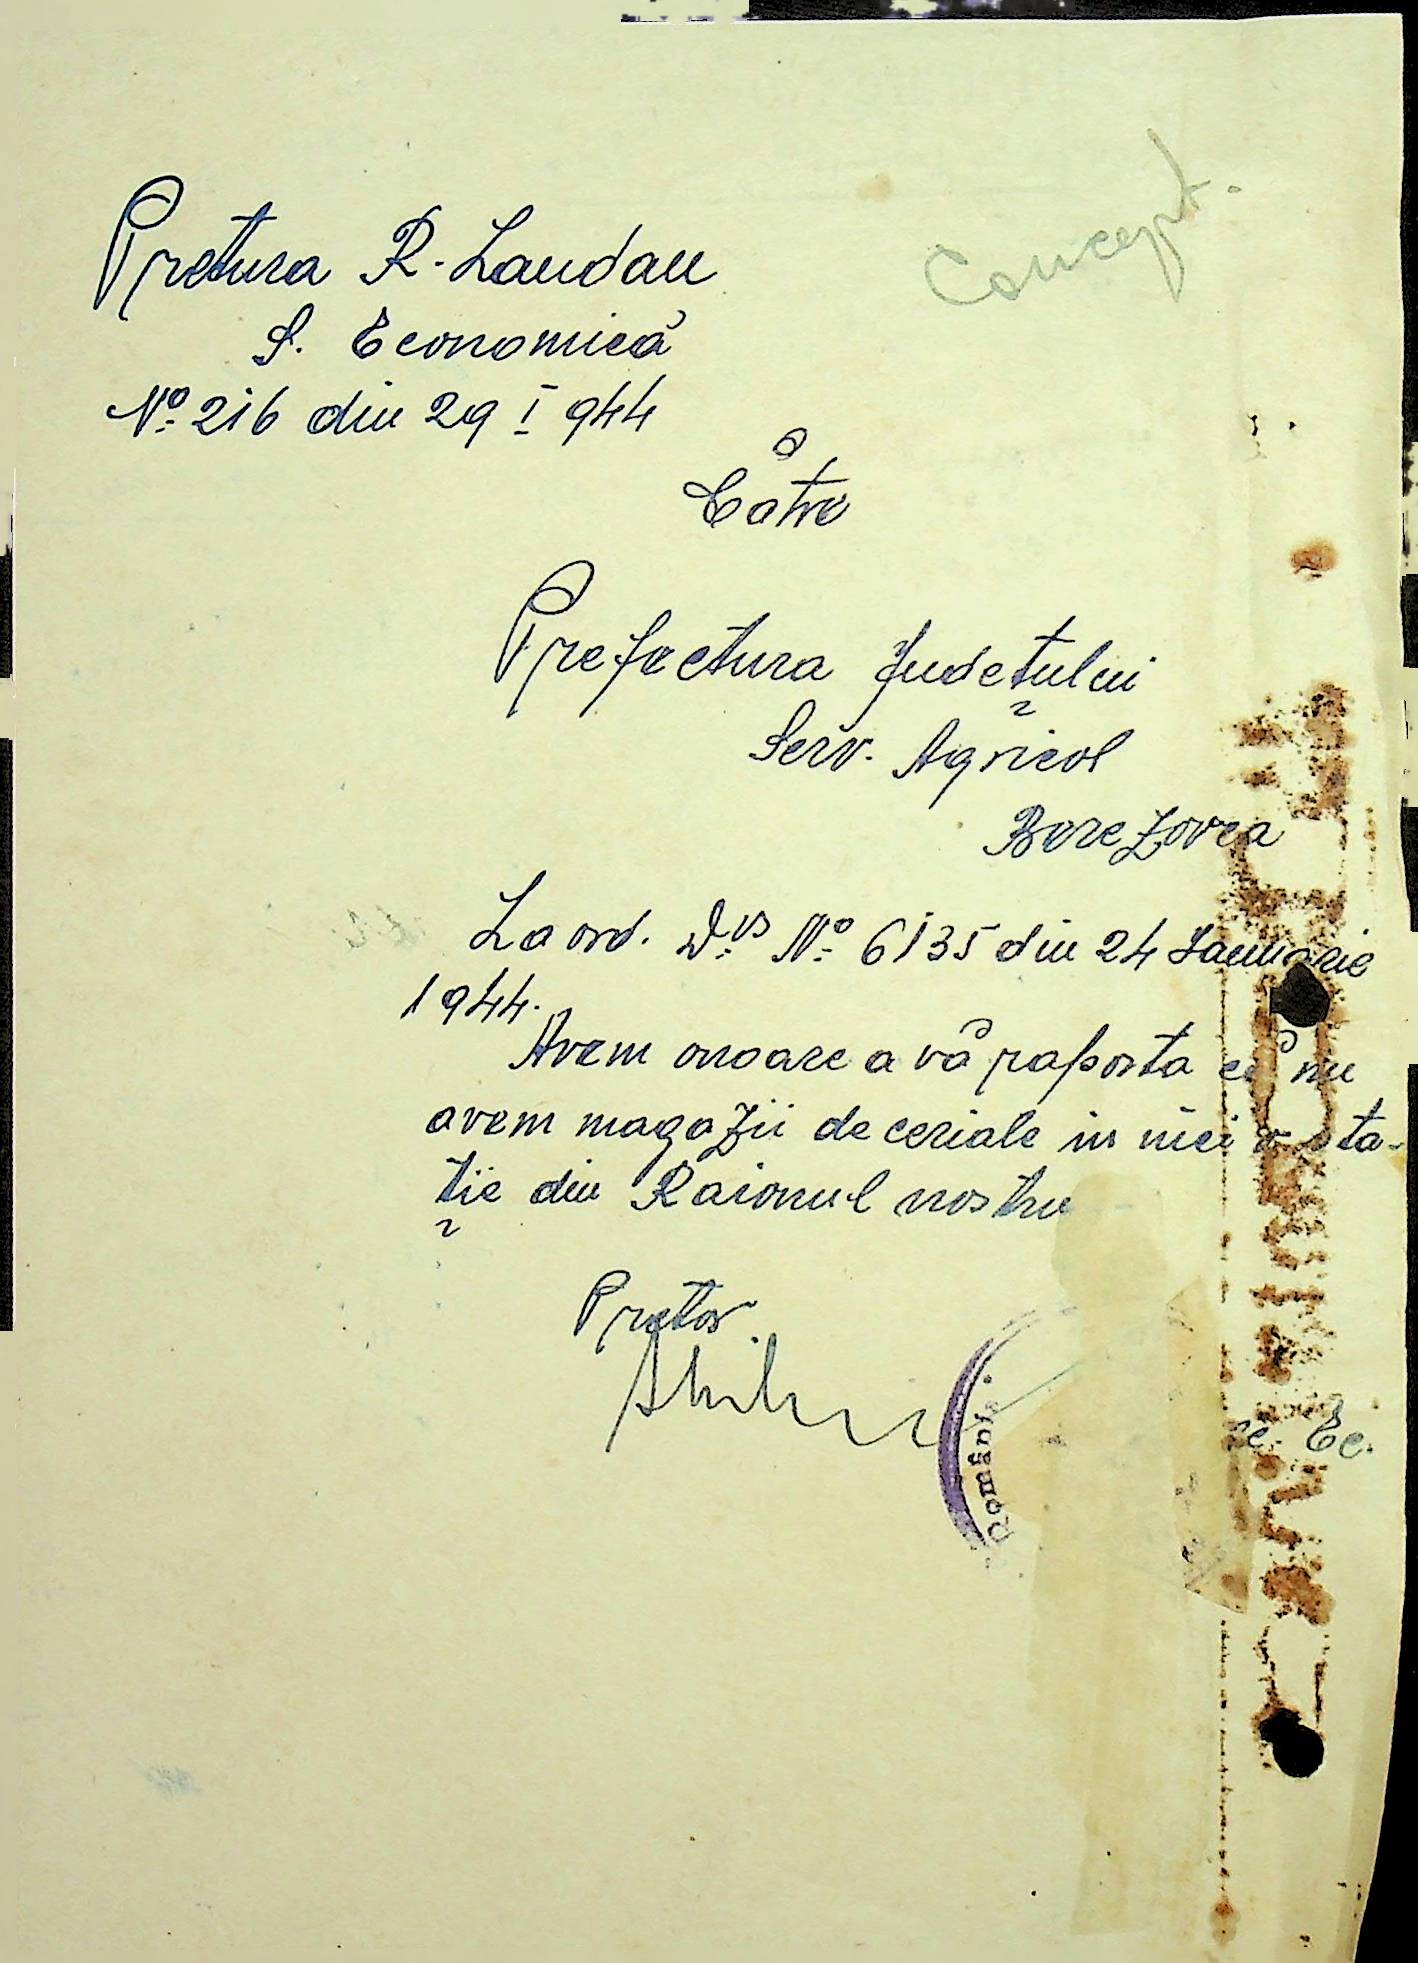 Concept.
Pretura R. Landau
S. Economică
Nº 216 din 29 I 944
Cătrе
Prefectura Județului
Serv. Agricol
Berezovca
La ord. Dvs Nº 6135 din 24 Ianuarie
1944.
Avem onoare a vă raporta că nu
avem magazii de ceriale in nici o sta-
ție din Raionul nostru
Pretor
Români
Ec.